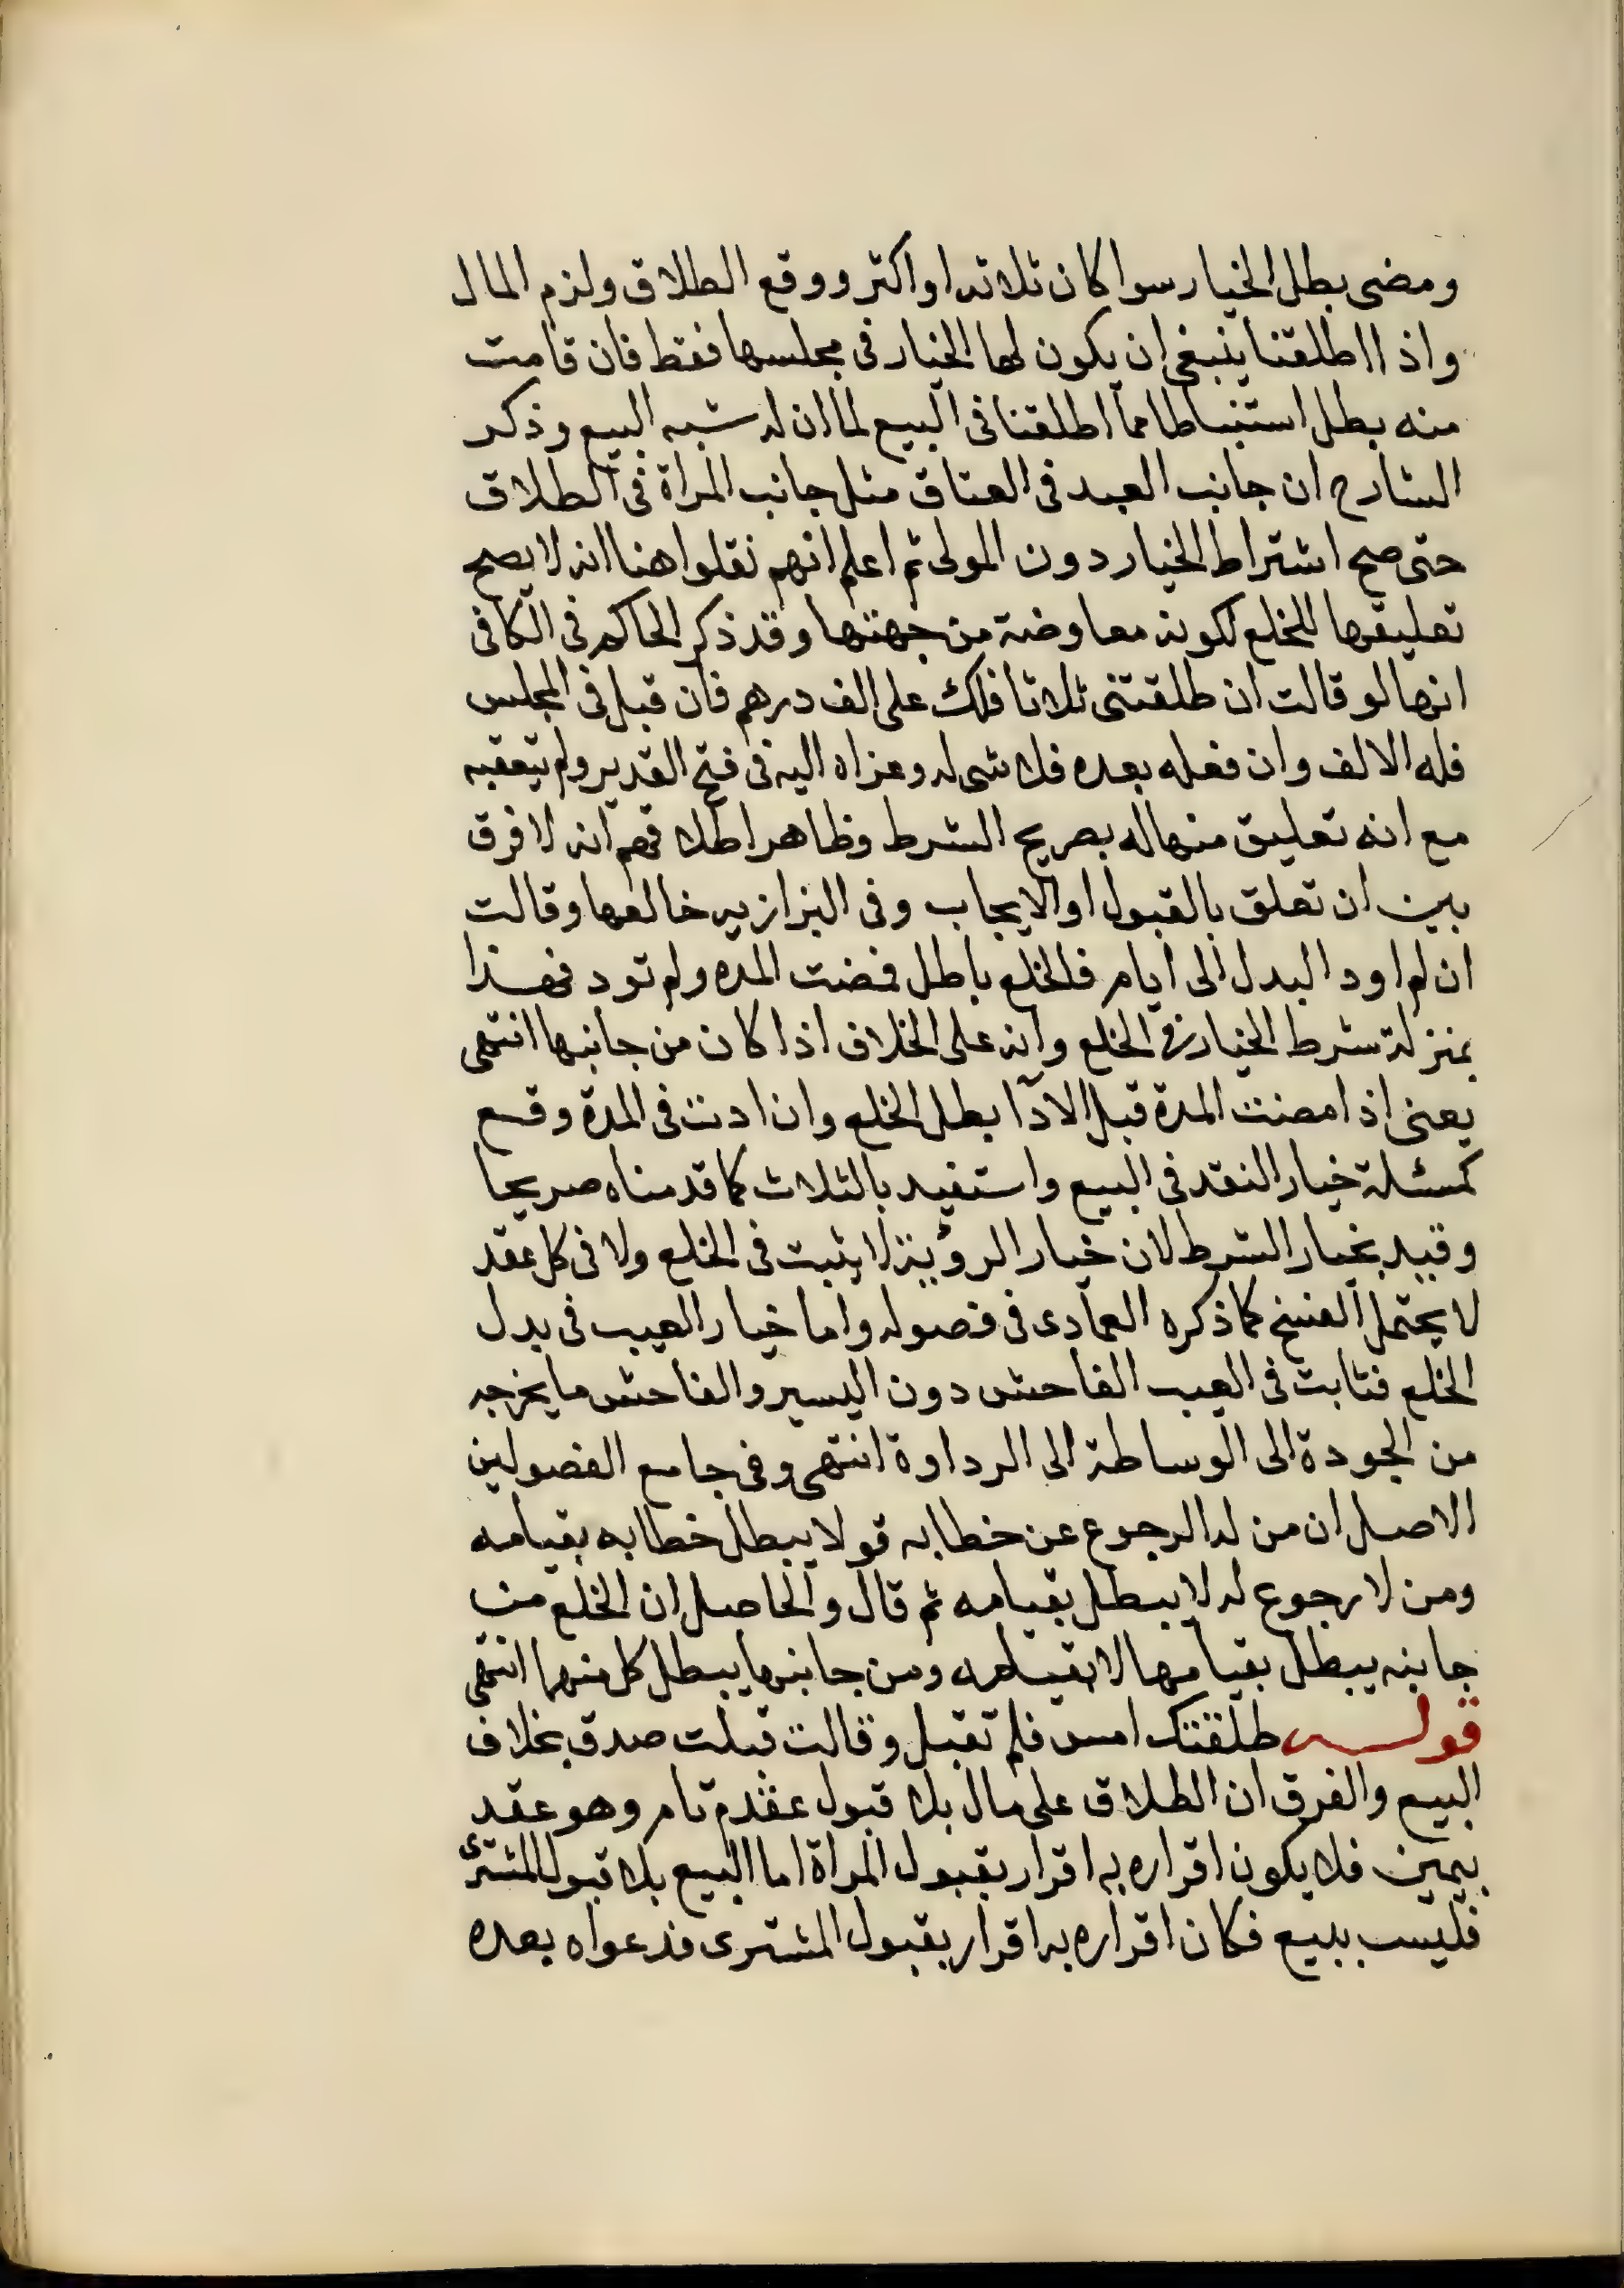 ومضى بطل الخيار سوا كان ثلاثه او اكثر ووقع الطلاق ولزم المال
واذا اطلقنا ينبغى ان يكون لها الخيار فى مجلسها فقط فان قامت
منه بطل استنباطا مما اطلقنا فى البيع لما ان له شبه البيع وذكر
الشارح ان جانب العبد فى العتاق مثل جانب المراة فى الطلاق
حتى صح اشتراط الخيار دون المولى ثم اعلم انهم نقلوا هنا انه لا يصح
تعليقها للخلع لكونه معاوضة من جهتها وقد ذكر الحاكم فى الكافى
انها لو قالت ان طلقتنى ثلاثا فلك على الف درهم فان قبل فى المجلس
فله الالف وان فعله بعده فلا شى له وعزاه اليه فى فتح القدير ولم يتعقبه
مع انه تعليق منها له بصريح الشرط وظاهر اطلاقهم انه لا فرق
بين ان تعلق بالقبول او الايجاب وفى البزازيه خالعها وقالت
ان لم اود البدل الى ايام فالخلع باطل فمضت المده ولم تود فهذا
بمنزلة شرط الخيار فى الخلع وانه على الخلاف اذا كان من جانبها انتهى
يعنى اذا مضت المدة قبل الادآ بطل الخلع وان ادت فى المدة وقع
كمسئلة خيار النقد فى البيع واستفيد بالثلاث كما قدمناه صريحا
وقيد بخيار الشرط لان خيار الروؤية لا يثبت فى الخلع ولا فى كل عقد
لا يحتمل الفسخ كما ذكره العمادى فى فصوله واما خيار العيب فى بدل
الخلع فثابت فى العيب الفاحش دون اليسير والفاحش ما يخرجه
من الجودة الى الوساطة الى الرداوة انتهى وفى جامع الفصولين
الاصل ان من له الرجوع عن خطابه قولا يبطل خطابه بقيامه
ومن لا رجوع له لا يبطل بقيامه ثم قال والحاصل ان الخلع من
جانبه يبطل بقيامها لا بقيامه ومن جانبها يبطل كل منهما انتهى
قوله طلقتك امس فلم تقبل وقالت قبلت صدق بخلاف
البيع والفرق ان الطلاق على مال بلا قبول عقد تام وهو عقد
يمين فلا يكون اقراره به اقرار بقبول المراة اما البيع بلا قبول المشترى
فليس ببيع فكان اقراره به اقرار بقبول المشترى فدعواه بعده